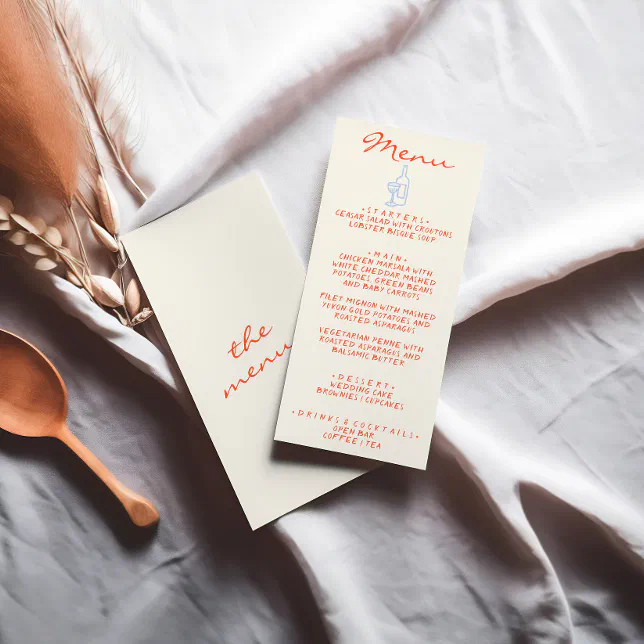 Menu
• STARTERS •
CEASAR SALAD WITH CROUTONS
LOBSTER BISQUE SOUP
• MAIN •
CHICKEN MARSALA WITH
WHITE CHEDDAR MASHED
POTATOES, GREEN BEANS
AND BABY CARROTS
FILET MIGNON WITH MASHED
YUKON GOLD POTATOES AND
ROASTED ASPARAGUS
VEGETARIAN PENNE WITH
ROASTED ASPARAGUS AND
BALSAMIC BUTTER
• DESSERT •
WEDDING CAKE
BROWNIES | CUPCAKES
• DRINKS & COCKTAILS •
OPEN BAR
COFFEE | TEA
the
menu